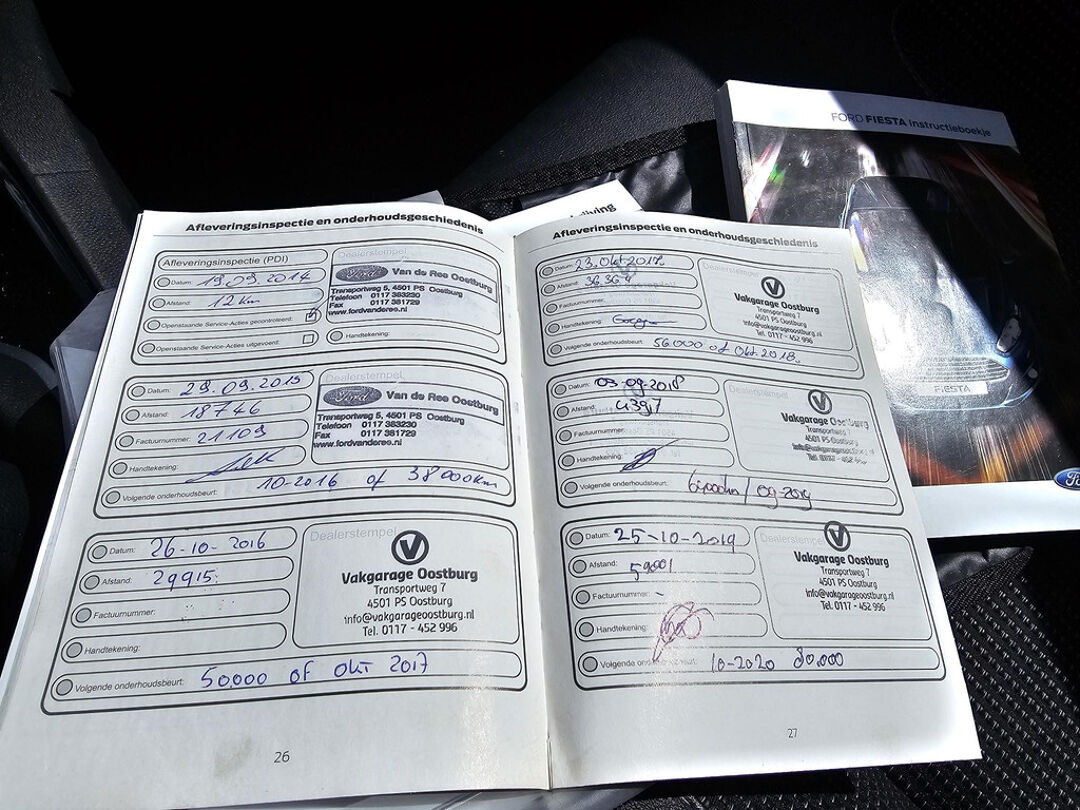 Afleveringsinspectie en onderhoudsgeschiedenis
Afleveringsinspectie (PDI)
Datum: 19.09.2014
Afstand: 12 km
Openstaande Service-Acties gecontroleerd:
Openstaande Service-Acties uitgevoerd:
Dealerstempel
Ford Van de Ree Oostburg
Transportweg 5, 4501 PS Oostburg
Telefoon 0117 383230
Fax 0117 381729
www.fordvanderee.nl
Handtekening:
Datum: 29.09.2015
Afstand: 18746
Factuurnummer: 21109
Handtekening:
Dealerstempel
Ford Van de Ree Oostburg
Transportweg 5, 4501 PS Oostburg
Telefoon 0117 383230
Fax 0117 381729
www.fordvanderee.nl
Volgende onderhoudsbeurt: 10-2016 of 38000km
Datum: 26-10-2016
Afstand: 29915.
Factuurnummer:
Handtekening:
Dealerstempel
Vakgarage Oostburg
Transportweg 7
4501 PS Oostburg
info@vakgarageoostburg.nl
Tel. 0117 - 452 996
Volgende onderhoudsbeurt: 50.000 of okt 2017
26
Afleveringsinspectie en onderhoudsgeschiedenis
Datum: 23.okt
Afstand:
Factuurnummer:
Handtekening:
Dealerstempel
Vakgarage Oostburg
Transportweg 7
4501 PS Oostburg
info@vakgarageoostburg.nl
Tel. 0117 - 452 996
Volgende onderhoudsbeurt: 56.000 of Okt.2018.
Datum: 03-09-2018
Afstand:
Factuurnummer:
Handtekening:
Dealerstempel
Vakgarage Oostburg
Transportweg 7
4501 PS Oostburg
info@vakgarageoostburg.nl
Tel. 0117 - 452 996
Volgende onderhoudsbeurt: / 09-2019
Datum: 25-10-2019
Afstand:
Factuurnummer: -
Handtekening:
Dealerstempel
Vakgarage Oostburg
Transportweg 7
4501 PS Oostburg
info@vakgarageoostburg.nl
Tel. 0117 - 452 996
Volgende onderhoudsbeurt: 10-2020 80.000
27
FORD FIESTA Instructieboekje
FIESTA